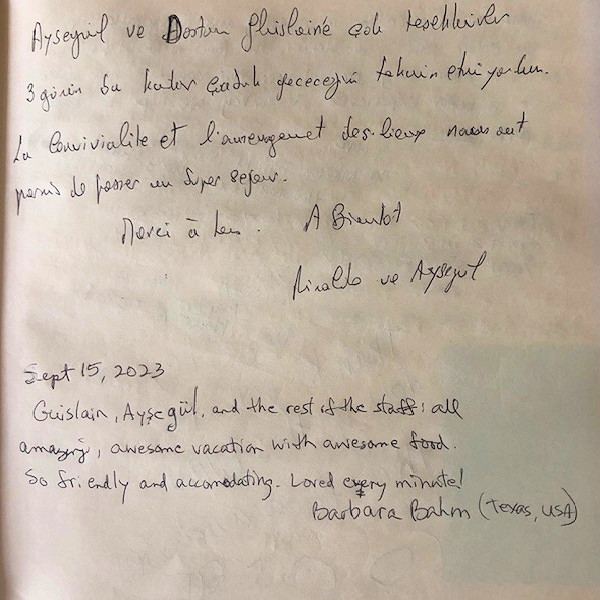 Ayşegül ve Dostum Ghislaine çok teşekkürler
3 günün bu kadar çabuk geçeceğini tahmin etmiyordum.
La Convivialite et l'amenagement des lieux nous ont
permis de passer un super sejour.
Merci à tous. A Bientot
Rinaldo ve Ayşegül
Sept 15, 2023
Guislain, Ayşegül, and the rest of the staff: all
amazing, awesome vacation with awesome food.
So friendly and accomodating. Loved every minute!
Barbara Bahm (Texas, USA)